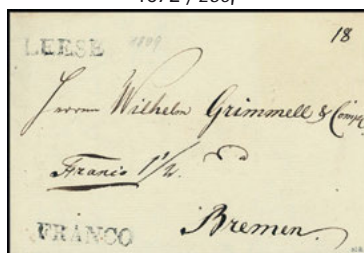 LEESE 1809 18
Herrn Wilhelm Grimmell & Comp
Franco 1 1/2.
FRANCO Bremen.